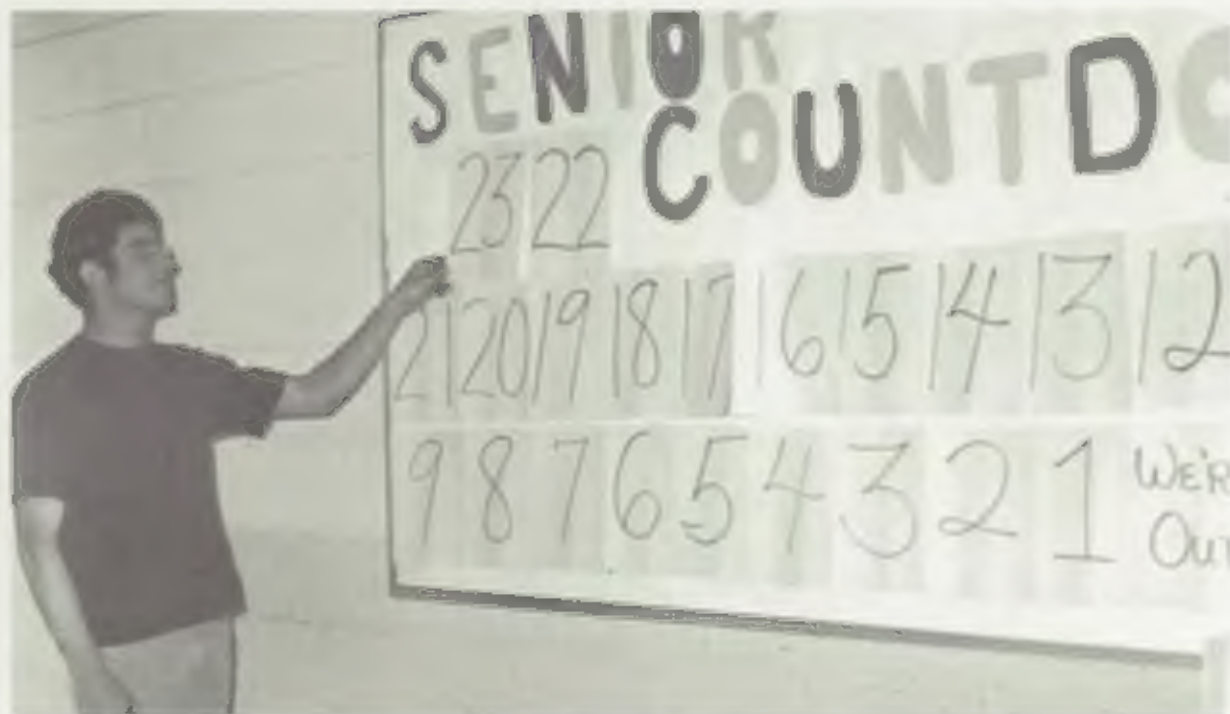 SENIOR
COUNTDO
23 22
21 20 19 18 17 16 15 14 13 12
9 8 7 6 5 4 3 2 1 WE'R
OUT